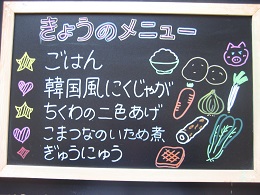 きょうのメニュー
ごはん
韓国風にくじゃが
ちくわの二色あげ
こまつなのいため煮
ぎゅうにゅう